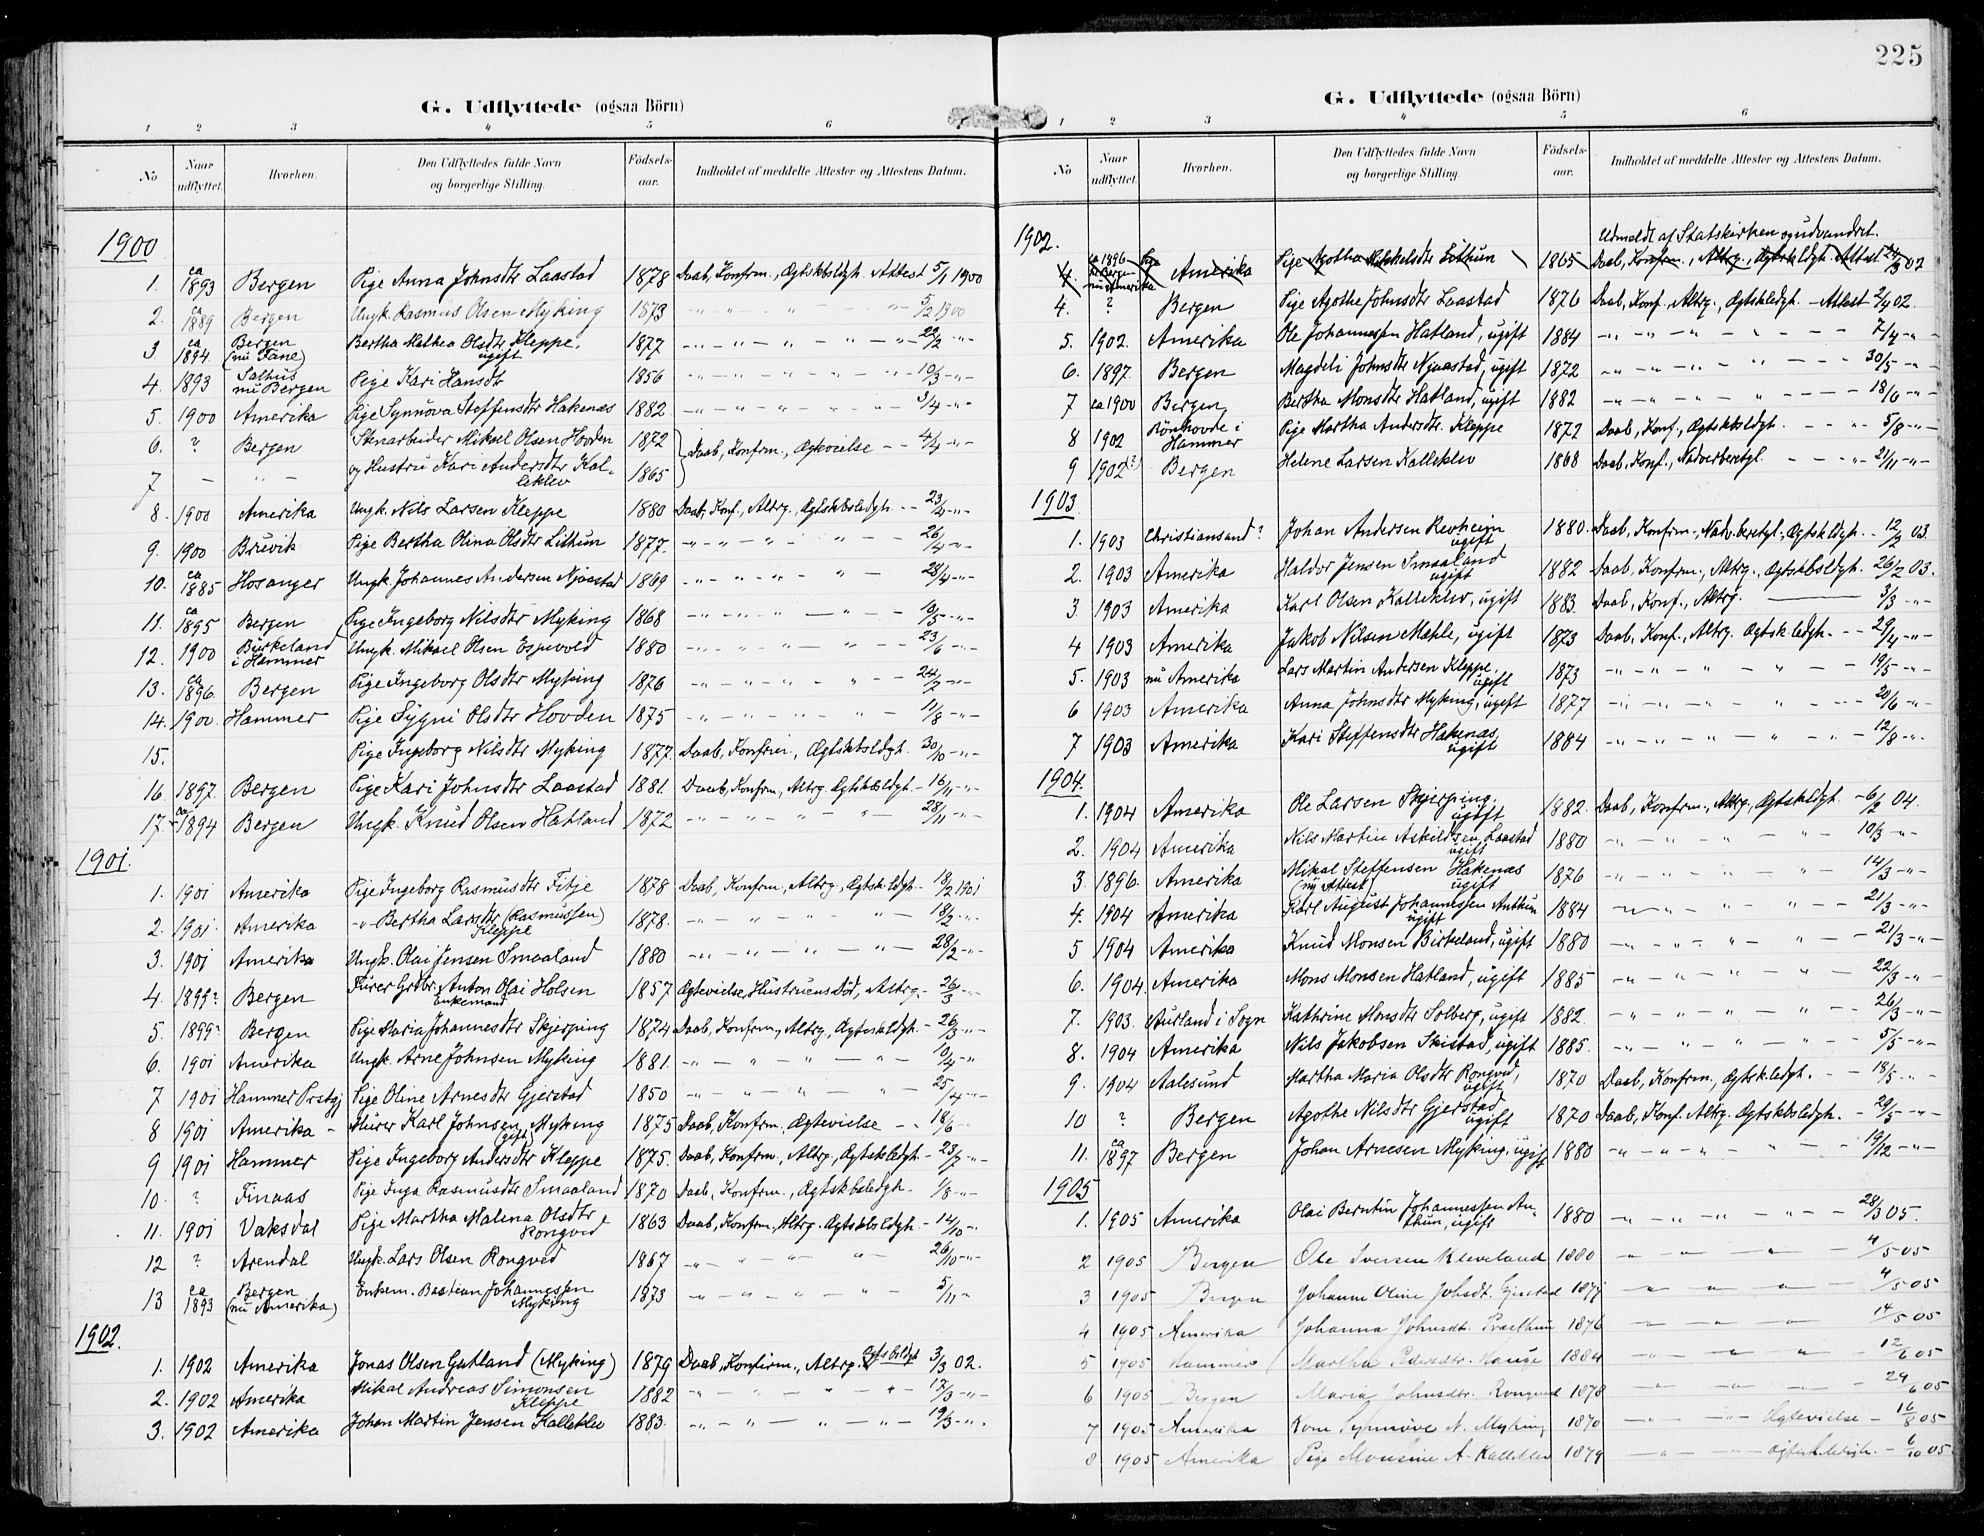 G. Udflyttede (ogsaa Börn)
1 2 3 4 5 6
No Naar udflyttet. Hvorhen. Den Udflyttedes fulde Navn og borgerlige Stilling. Födsels-aar. Indholdet af meddelte Attester og Attestens Datum.
1900
1. ca 1893 Bergen Pige Anna Johnsdtr Laastad 1878 Daab, Konfrm., Ægtskbsldgh. Attest 5/1 1900
2. ca 1889 Bergen Ungk. Rasmus Olsen Myking 1873 -"- 5/2 1900
3. ca 1894. Bergen (nu Fane) Bertha Mathea Olsdtr Kleppe, ugift 1877 -"- 22/2 -"-
4. 1893 Salhus nu Bergen Pige Kari Hansdtr 1856 -"- 10/3 -"-
5. 1900 Amerika Pige Synnöva Steffensdtr Hakenæs 1882 -"- 3/4 -"-
6. ? Bergen Stenarbeider Mikael Olsen Hovden 1872 Daab, Konfrm., Ægtevielse - 4/4 -"-
7 - " - og Hustru Kari Andersdtr Kalleklev 1865
8. 1900 Amerika Ungk. Nils Larsen Kleppe 1880 Daab, Konf., Altrg., Ægtskbsledgh. - 23/4 -"-
9. 1900 Bruvik Pige Bertha Olina Olsdtr Lithun 1877. -"- 26/4 -"-
10. ca 1885 Hosanger Ungk. Johannes Andersen Njaastad 1869 -"- 28/4 -"-
11. ca 1895 Bergen Pige Ingeborg Nilsdtr Myking 1868 -"- 10/5 -"-
12. 1900 Birkeland i Hammer Ungk. Mikael Olsen Espevold 1880 -"- 23/6 -"-
13. ca 1896. Bergen Pige Ingeborg Olsdtr Myking 1876 -"- 24/7 -"-
14. 1900. Hammer Pige Sygni Olsdtr Hovden 1875 -"- 11/8 -"-
15. Pige Ingeborg Nilsdtr Myking 1877. Daab, Konfrm., Ægtskbsldgh. 30/10 -"-
16 1897. Bergen Pige Kari Johnsdtr Laastad 1881. Daab, Konfrm., Altrg. Ægtskbsldgh. - 16/11 -"-
17. ca 1894 Bergen Ungk. Knud Olsen Hatland 1872 -"- 28/11 -"-
1901.
1. 1901 Amerika Pige Ingeborg Rasmusdtr Fitje 1878 Daab, Konfrm., Altrg., Ægtsk.ldgh. - 18/2 1901
2. 1901 Amerika -"- Bertha Larsdtr (Rasmussen) Kleppe 1878. -"- 18/2 -"-
3. 1901 Amerika Ungk. Olai Jensen Smaaland 1880 -"- 28/2 -"-
4. 1899? Bergen Fürer Grdbr. Anton Olai Holsen Enkemand 1857 Ægtevielse, Hustruens Död, Altrg. - 26/3 -"-
5. 1899? Bergen Pige Maria Johannesdtr Skjerping 1874 Daab, Konfrm., Altrg., Ægtsskldgh. - 26/3 -"-
6. 1901 Amerika Ungk. Arne Johnsen Myking 1881. -"- 10/4 -"-
7 1901 Hammer Prstgj Pige Oline Arnesdtr Gjerstad 1850 -"- 25/4 -"-
8 1901 Amerika - Murer Karl Johnsen (gift) Myking 1875 Daab, Konfrm., Ægtevielse - 18/6 -"-
9 1901 Hammer Pige Ingeborg Andersdtr Kleppe 1875. Daab, Konfrm., Altrg., Ægtskledgh - 23/7 -"-
10. ? Finaas Pige Inga Rasmusdtr Smaaland 1870 Daab, Konfrm., Ægtskbsledgh. - 1/8 -"-
11. 1901 Vaksdal Pige Martha Malena Olsdtr Rongved 1863 Daab, Konfrm., Altrg. Ægtskbsldgh. - 14/10 -"-
12 ? Arendal Ungk. Lars Olsen Rongved 1867 -"- 26/10 -"-
13 ca 1893 Bergen (nu Amerika) Enkem. Bastian Johannessen Myking 1873 -"- 5/11 -"-
1902.
1. 1902 Amerika Jonas Olsen Gatland (Myking) 1879 Daab, Konfirm., Altrg. Ægtsbsldgt 3/3 02.
2. 1902 Amerika Mikal Andreas Simonsen Kleppe 1882 -"- 17/3 -"-
3. 1902 Amerika Johan Martin Jensen Kalleklev 1883. -"- 19/3 -"-
225
G. Udflyttede (ogsaa Börn)
1 2 3 4 5 6
No Naar udflyttet. Hvorhen. Den Udflyttedes fulde Navn og borgerlige Stilling. Födsels-aar. Indholdet af meddelte Attester og Attestens Datum.
1902.
Udmeldt af Statskirken og udvandret.
4. ca 1896 til Bergen nu Amerika Amerika Pige Agotha Mikkelsdtr Lithun 1865 Daab, Konfrm., Altrg., Ægtskldgh. Attest 24/3 02
4. ? Bergen Pige Agothe Johnsdtr Laastad 1876 Daab, Konf., Altrg., Ægtskledgh. - Attest 2/4 02.
5. 1902. Amerika Ole Johannessen Hatland, ugift 1884 -"- 7/4 -"-
6. 1897. Bergen Magdeli Johnsdtr Njaastad, ugift 1872 -"- 30/5 -"-
7 ca 1900 Bergen Bertha Monsdtr Hatland, ugift 1882 -"- 18/6 -"-
8 1902 Rönhovde i Hammer Pige Martha Andersdtr. Kleppe 1872 Daab, Konf., Ægtskbsldgh. - 5/8 -"-
9 1902(?) Bergen Helene Larsen Kalleklev 1868 Daab, Konf., Nadverberetgl. - 21/11 -"-
1903
1. 1903 Christiansand? Johan Andersen Revheim ugift 1880 Daab, Konfrm., Nadv.beretgl., Ægtskldgh. - 12/2 03.
2. 1903 Amerika Haldor Jensen Smaaland ugift 1882 Daab, Konfrm., Altrg., Ægtskbsldgh. 26/2 03.
3 1903 Amerika Karl Olsen Kalleklev, ugift 1883 Daab, Konf., Altrg. 3/3 -"-
4 1903 Amerika Jakob Nilsen Mæhle, ugift 1873 Daab, Konf., Altrg. Ægtsk.ledgh. - 29/4 -"-
5. 1903 nu Amerika Lars Martin Andersen Kleppe, ugift 1873 -"- 19/5 -"-
6 1903 Amerika Anna Johnsdtr Myking, ugift 1877 -"- 20/6 -"-
7 1903 Amerika Kari Steffensdtr Hakenæs, ugift 1884 -"- 12/8 -"-
1904.
1. 1904 Amerika Ole Larsen Skjerping, ugift 1882. Daab, Konfrm., Altrg., Ægtskldgh. - 6/2 04.
2. 1904 Amerika Nils Martin Askildsen Laastad ugift 1880 -"- 10/3 -"-
3 1896. Amerika Mikal Steffensen Hakenæs (ny Attest) ugift 1876 -"- 14/3 -"-
4. 1904 Amerika Karl August Johannessen Anthun ugift 1884 -"- 21/3 -"-
5 1904 Amerika Knud Monsen Birkeland, ugift 1880 -"- 21/3 -"-
6. 1904. Amerika Mons Monsen Hatland, ugift 1885 -"- 22/3 -"-
7. 1903. Aurland i Sogn Kathrine Monsdtr Solberg, ugift 1882. -"- 26/3 -"-
8. 1904 Amerika Nils Jakobsen Skistad, ugift 1885. -"- 5/5 -"-
9. 1904 Aalesund Martha Maria Olsdtr Rongved, ugift 1870 Daab, Konfrm., Ægtskledgh. - 18/5 -"-
10 ? Bergen Agothe Nilsdtr Gjerstad ugift 1870 Daab, Konf. Altrg. Ægtskbsledgh. - 29/5 -"-
11. ca 1897 Bergen Johan Arnesen Myking, ugift 1880 -"- 19/12 -"-
1905
1. 1905 Amerika Olai Berntin Johannessen Anthun, ugift 1880 -"- 28/3 05.
2 1905 Bergen Ole Iversen Kleveland 1880 -"- 4/5 05
3 1905 Bergen Johanne Oline Johsdt. Gjerstad 1877 -"- 4/5 05
4 1905 Amerika Johanna Johnsdt. 1876 -"- 14/5 05
5 1905 Hammer Martha Pedersdtr. Hauge 1884 -"- 12/6 05
6 1905 Bergen Maria Johnsdtr. Rongved 1878 -"- 29/6 05
7 1905 Amerika Kone Synnöve N. Myking 1870 -"- Ægtevielse - 16/8 05
8 1905 Amerika Pige Monsine A. Kalleklev 1879 -"- ægteskbledigh. - 6/10 05